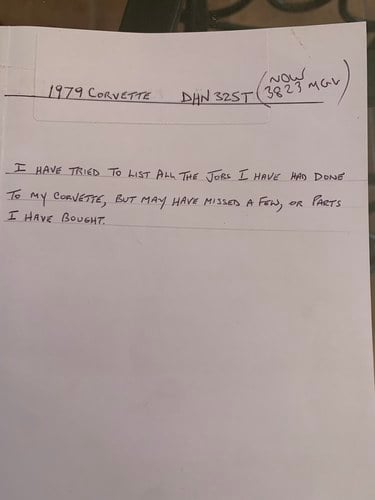 1979 CORVETTE DHN 325T (NOW 3823 MGV)
I HAVE TRIED TO LIST ALL THE JOBS I HAVE HAD DONE
TO MY CORVETTE, BUT MAY HAVE MISSED A FEW, OR PARTS
I HAVE BOUGHT.